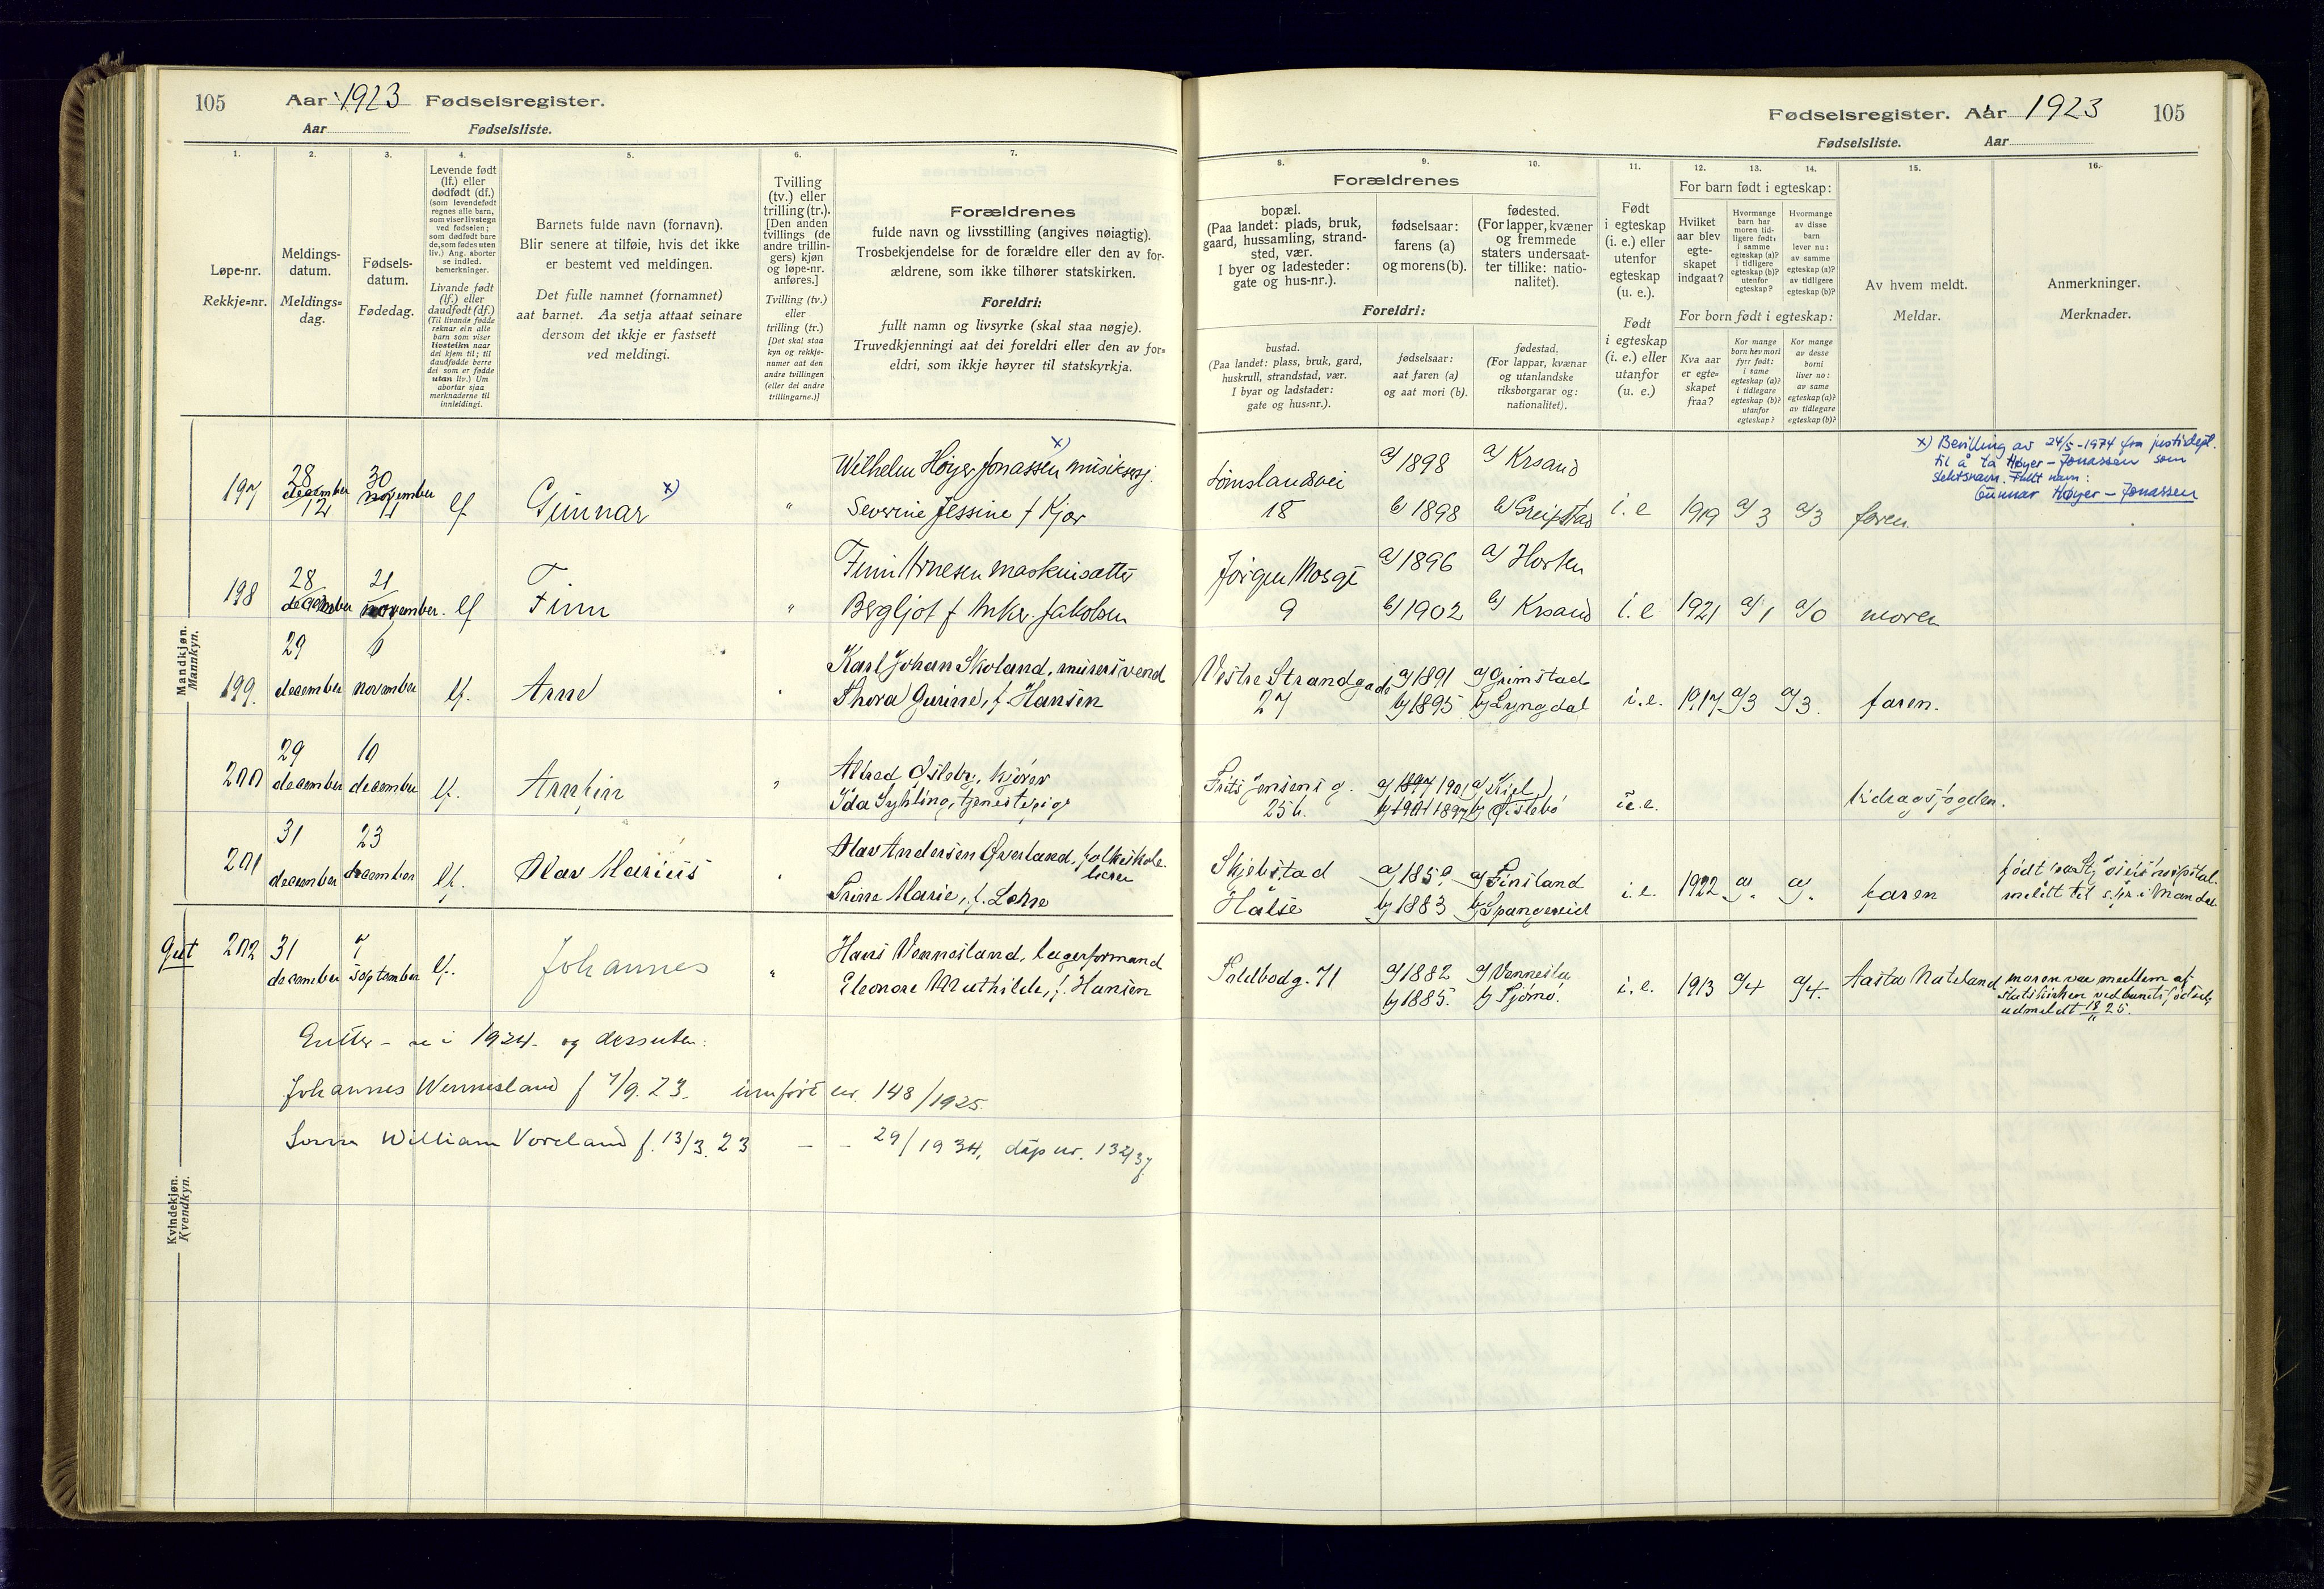 105 Aar 1923 Fødselsregister.
Aar Fødselsliste.
1. 2. 3. 4. 5. 6. 7.
Løpe-nr.
Rekkje=nr.
Meldings-
datum.
Meldings=
dag.
Fødsels-
datum.
Fødedag.
Levende født
(lf.) eller
dødfødt (df.)
(som levendefødt
regnes alle barn,
som viser livstegn
ved fødselen;
som dødfødt bare
de, som fødes uten
liv.) Ang. aborter
se indled.
bemerkninger.
Livande født
(lf.) eller
daudfødt (df.)
(Til livande fødde
reknar ein alle
barn som viser
livsteikn naar
dei kjem til; til
daudfødde berre
dei som er fødde
utan liv.) Um
abortar sjaa
merknaderne til
innleidingi.
Barnets fulde navn (fornavn).
Blir senere at tilføie, hvis det ikke
er bestemt ved meldingen.
Det fulle namnet (fornamnet)
aat barnet. Aa setja attaat seinare
dersom det ikkje er fastsett
ved meldingi.
Tvilling
(tv.) eller
trilling (tr.).
[Den anden
tvillings (de
andre trillin-
gers) kjøn
og løpe-nr.
anføres.]
Tvilling (tv.)
eller
trilling (tr.)
[Det skal staa
kyn og rekkje-
numer aat den
andre tvillingen
(eller dei andre
trillingarne.)]
Forældrenes
fulde navn og livsstilling (angives nøiagtig).
Trosbekjendelse for de forældre eller den av for-
ældrene, som ikke tilhører statskirken.
Foreldri:
fullt namn og livsyrke (skal staa nøgje).
Truvedkjenningi aat dei foreldri eller den av for=
eldri, som ikkje høyrer til statskyrkja.
Mandkjøn.
Mannkyn.
197 28 december 12 30 november 11 lf Gunnar x) " Wilhelm Høyer Jonassen x) musikserg.
Severine Jessine f Kjær
198 28 december 21 november. lf Finn " Finn Arnesen maskinsætter
Bergljot f Anker. Jakobsen
199. 29 december 6 november lf. Arne " Karl Johan Skoland, murersvend
Thora Gurine, f Hansen
200 29 december 10 december lf. Arnfin "
Ida tjenestepige
201 31 december 23 december lf. Olav Marius " Olav Andersen Øverland, folkeskole-
lærer
Trine Marie, f. Lohne
Gut 202 31 december 7 september lf. Johannes " Hans Vennesland, lagerformand
Eleonore Mathilde, f. Hansen
Gutter - se i 1924. og dessuten:
Johannes Wennesland f 7/9. 23. innført nr. 148/1925.
William Voreland f. 13/3. 23 - - 29/1934, dåp nr. 132/37
Kvindekjøn.
Kvendkyn.
Fødselsregister. Aar 1923 105
Fødselsliste. Aar
8. 9. 10. 11. 12. 13. 14. 15. 16.
Forældrenes
bopæl.
(Paa landet: plads, bruk,
gaard, hussamling, strand-
sted, vær.
I byer og ladesteder:
gate og hus-nr.).
fødselsaar:
farens (a)
og morens (b).
fødested.
(For lapper, kvæner
og fremmede
staters undersaat-
ter tillike: natio-
nalitet).
Foreldri:
bustad.
(Paa landet: plass, bruk, gard,
huskrull, strandstad, vær.
I byar og ladstader:
gate og hus=nr.).
fødselsaar:
aat faren (a)
og aat mori (b).
fødestad.
(For lappar, kvænar
og utanlandske
riksborgarar og:
nationalitet).
Født
i egteskap
(i. e.) eller
utenfor
egteskap
(u. e.).
Født
i egteskap
(i. e.) eller
utanfor
(u. e.)
For barn født i egteskap:
Hvilket
aar blev
egte-
skapet
indgaat?
Hvormange
barn har
moren tid-
ligere født:
i samme
egteskap (a)?
i tidligere
egteskap (b)?
utenfor
egteskap?
Hvormange
av disse
barn
lever nu:
av samme
egteskap (a)?
av tidligere
egteskap (b)?
For born født i egteskap:
Kva aar
er egte=
skapet
fraa?
Kor mange
born hev mori
fyrr født:
i same
egteskap (a)?
i tidlegare
egteskap (b)?
utanfor
egteskap?
Kor mange
av desse
borni
liver no:
av same
egteskap (a)?
av tidlegare
egteskap (b)?
Av hvem meldt.
Meldar.
Anmerkninger.
Merknader.
Lømslandsvei
18 a/ 1898 b/ 1898 a/ Krsand b/ Greipstad i. e 1919 a/ 3 a/ 3 faren.
x) Bevilling av 24/5-1974 fra justisdept.
til å ta Høyer-Jonassen som
slektsnavn. Fullt navn:
Gunnar Høyer-Jonassen
Jørgen Mosgt
9 a/ 1896 b/ 1902 a/ Horten b/ Krsand i. e 1921 a/ 1 a/ 0 moren
Vestre Strandgade
27 a/ 1891 b/ 1895 a/ Grimstad b/ Lyngdal i. e. 1917 a/ 3 a/ 3. faren.
Frits Jensens g.
25 b. a/ 1897 1901 b/ 1901 1897 a/ Kiel b/
Skjebstad
Halse b/ 1883 a/ Finsland b/ Spangereid i. e. 1922 a/. a/. faren
meldt til s.pr. i Mandal
Toldbodg. 71 a/ 1882 b/ 1885. a/ Vennesla b/ Tjømø. i. e. 1913 a/ 4 a/ 4. Aasta Nateland moren var medlem af
statskirken ved barnets fødsel,
udmeldt 18/11 25.